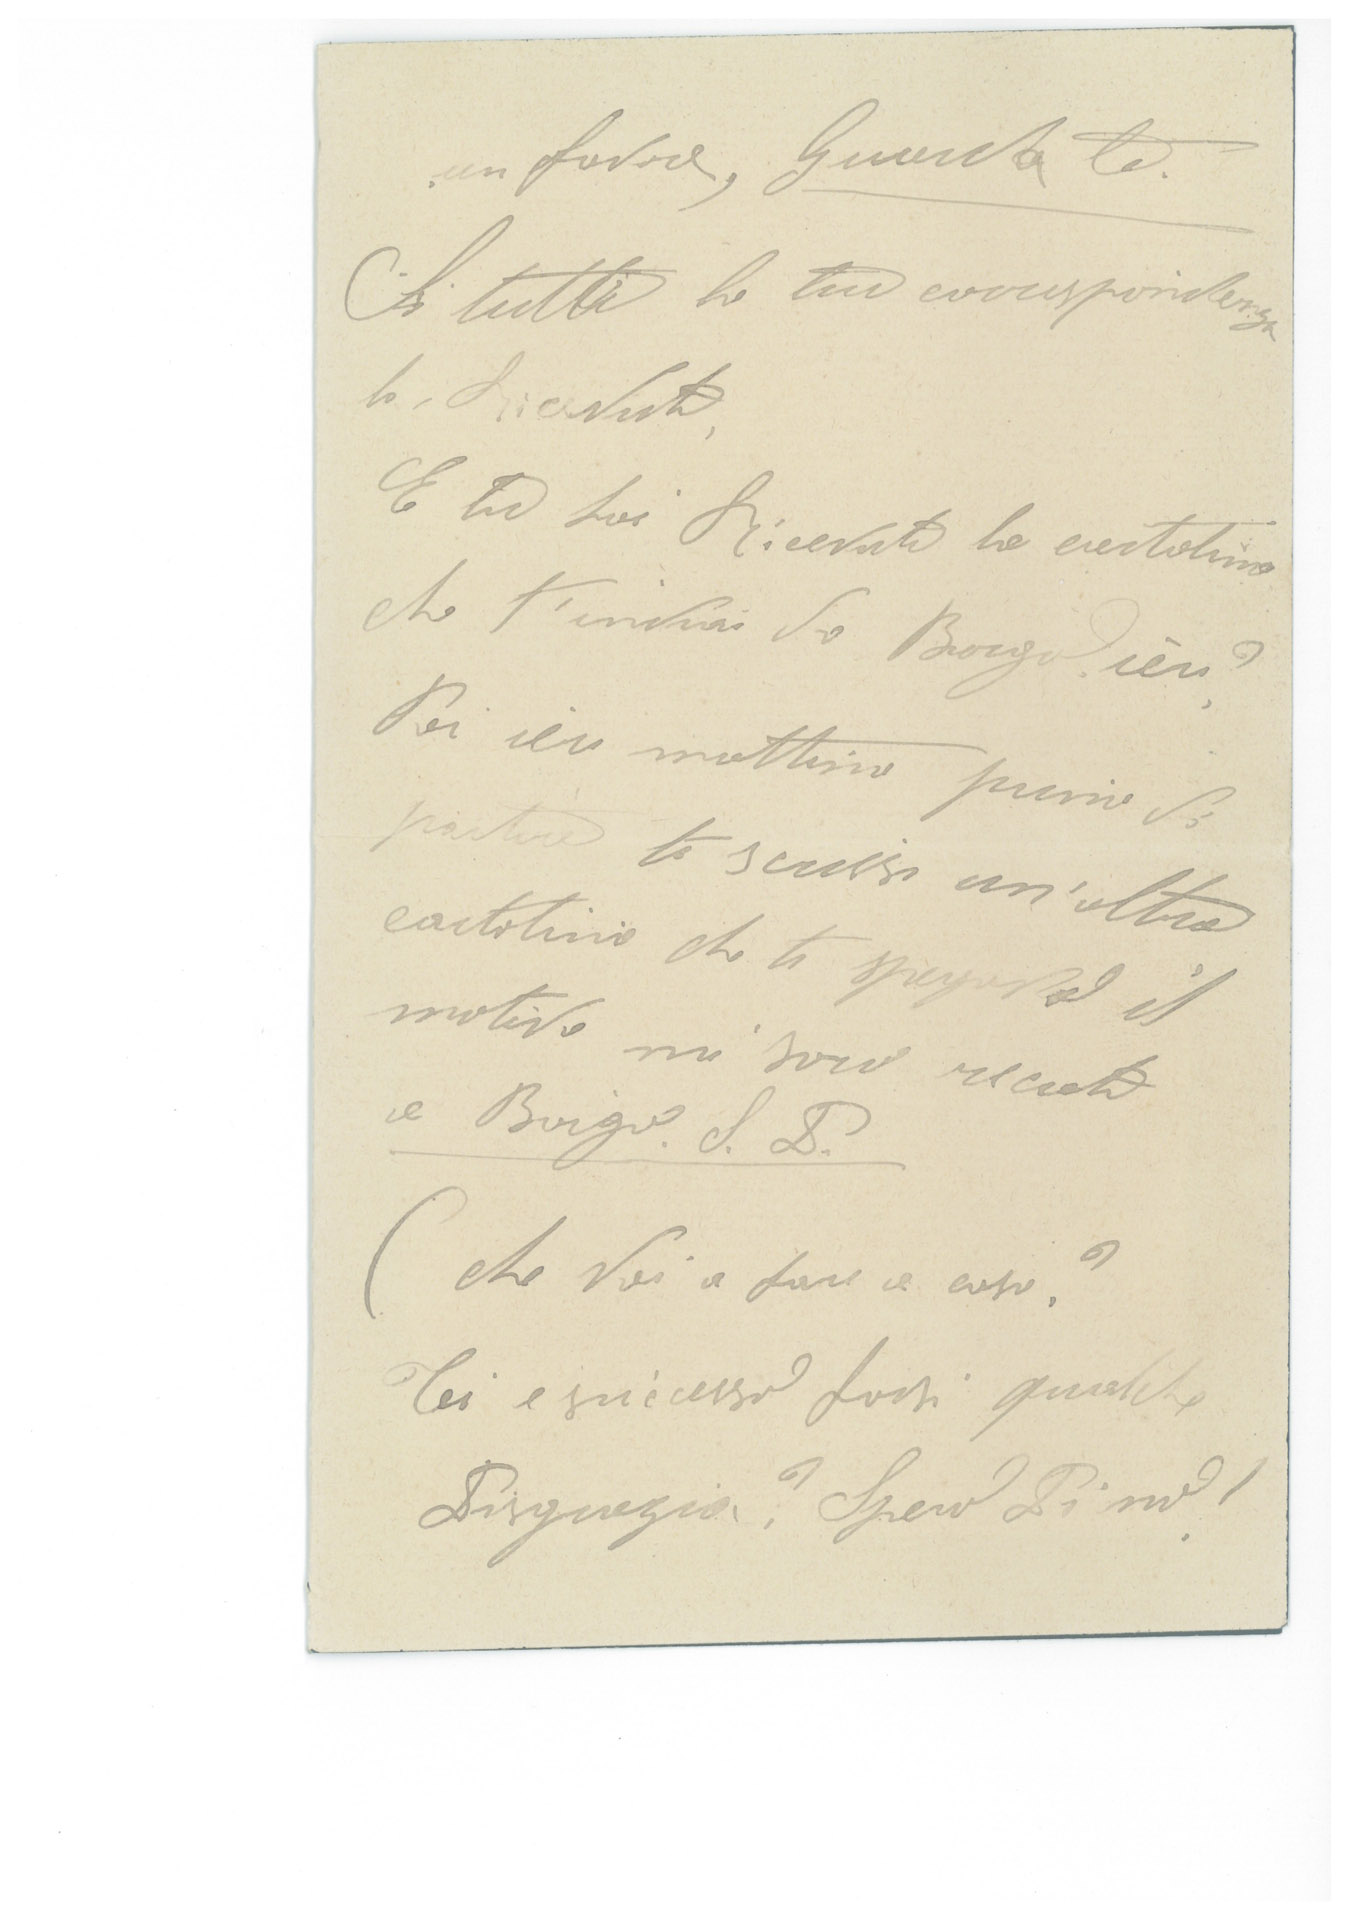 un favore, Guarda te.
Si tutta la tua corrispondenza
ho, Ricevuto,
E tu hai Ricevuto la cartolina
che t'inviai da Borgo ieri?
Poi ieri mattina prima di
partire ti scrissi un'altra
cartolina che ti spiegavo il
motivo mi sono recato
a Borgo. S. D.
(che vai a fare a casa?
Ti è successo forsi qualche
Disgrazia? Spero Di no!